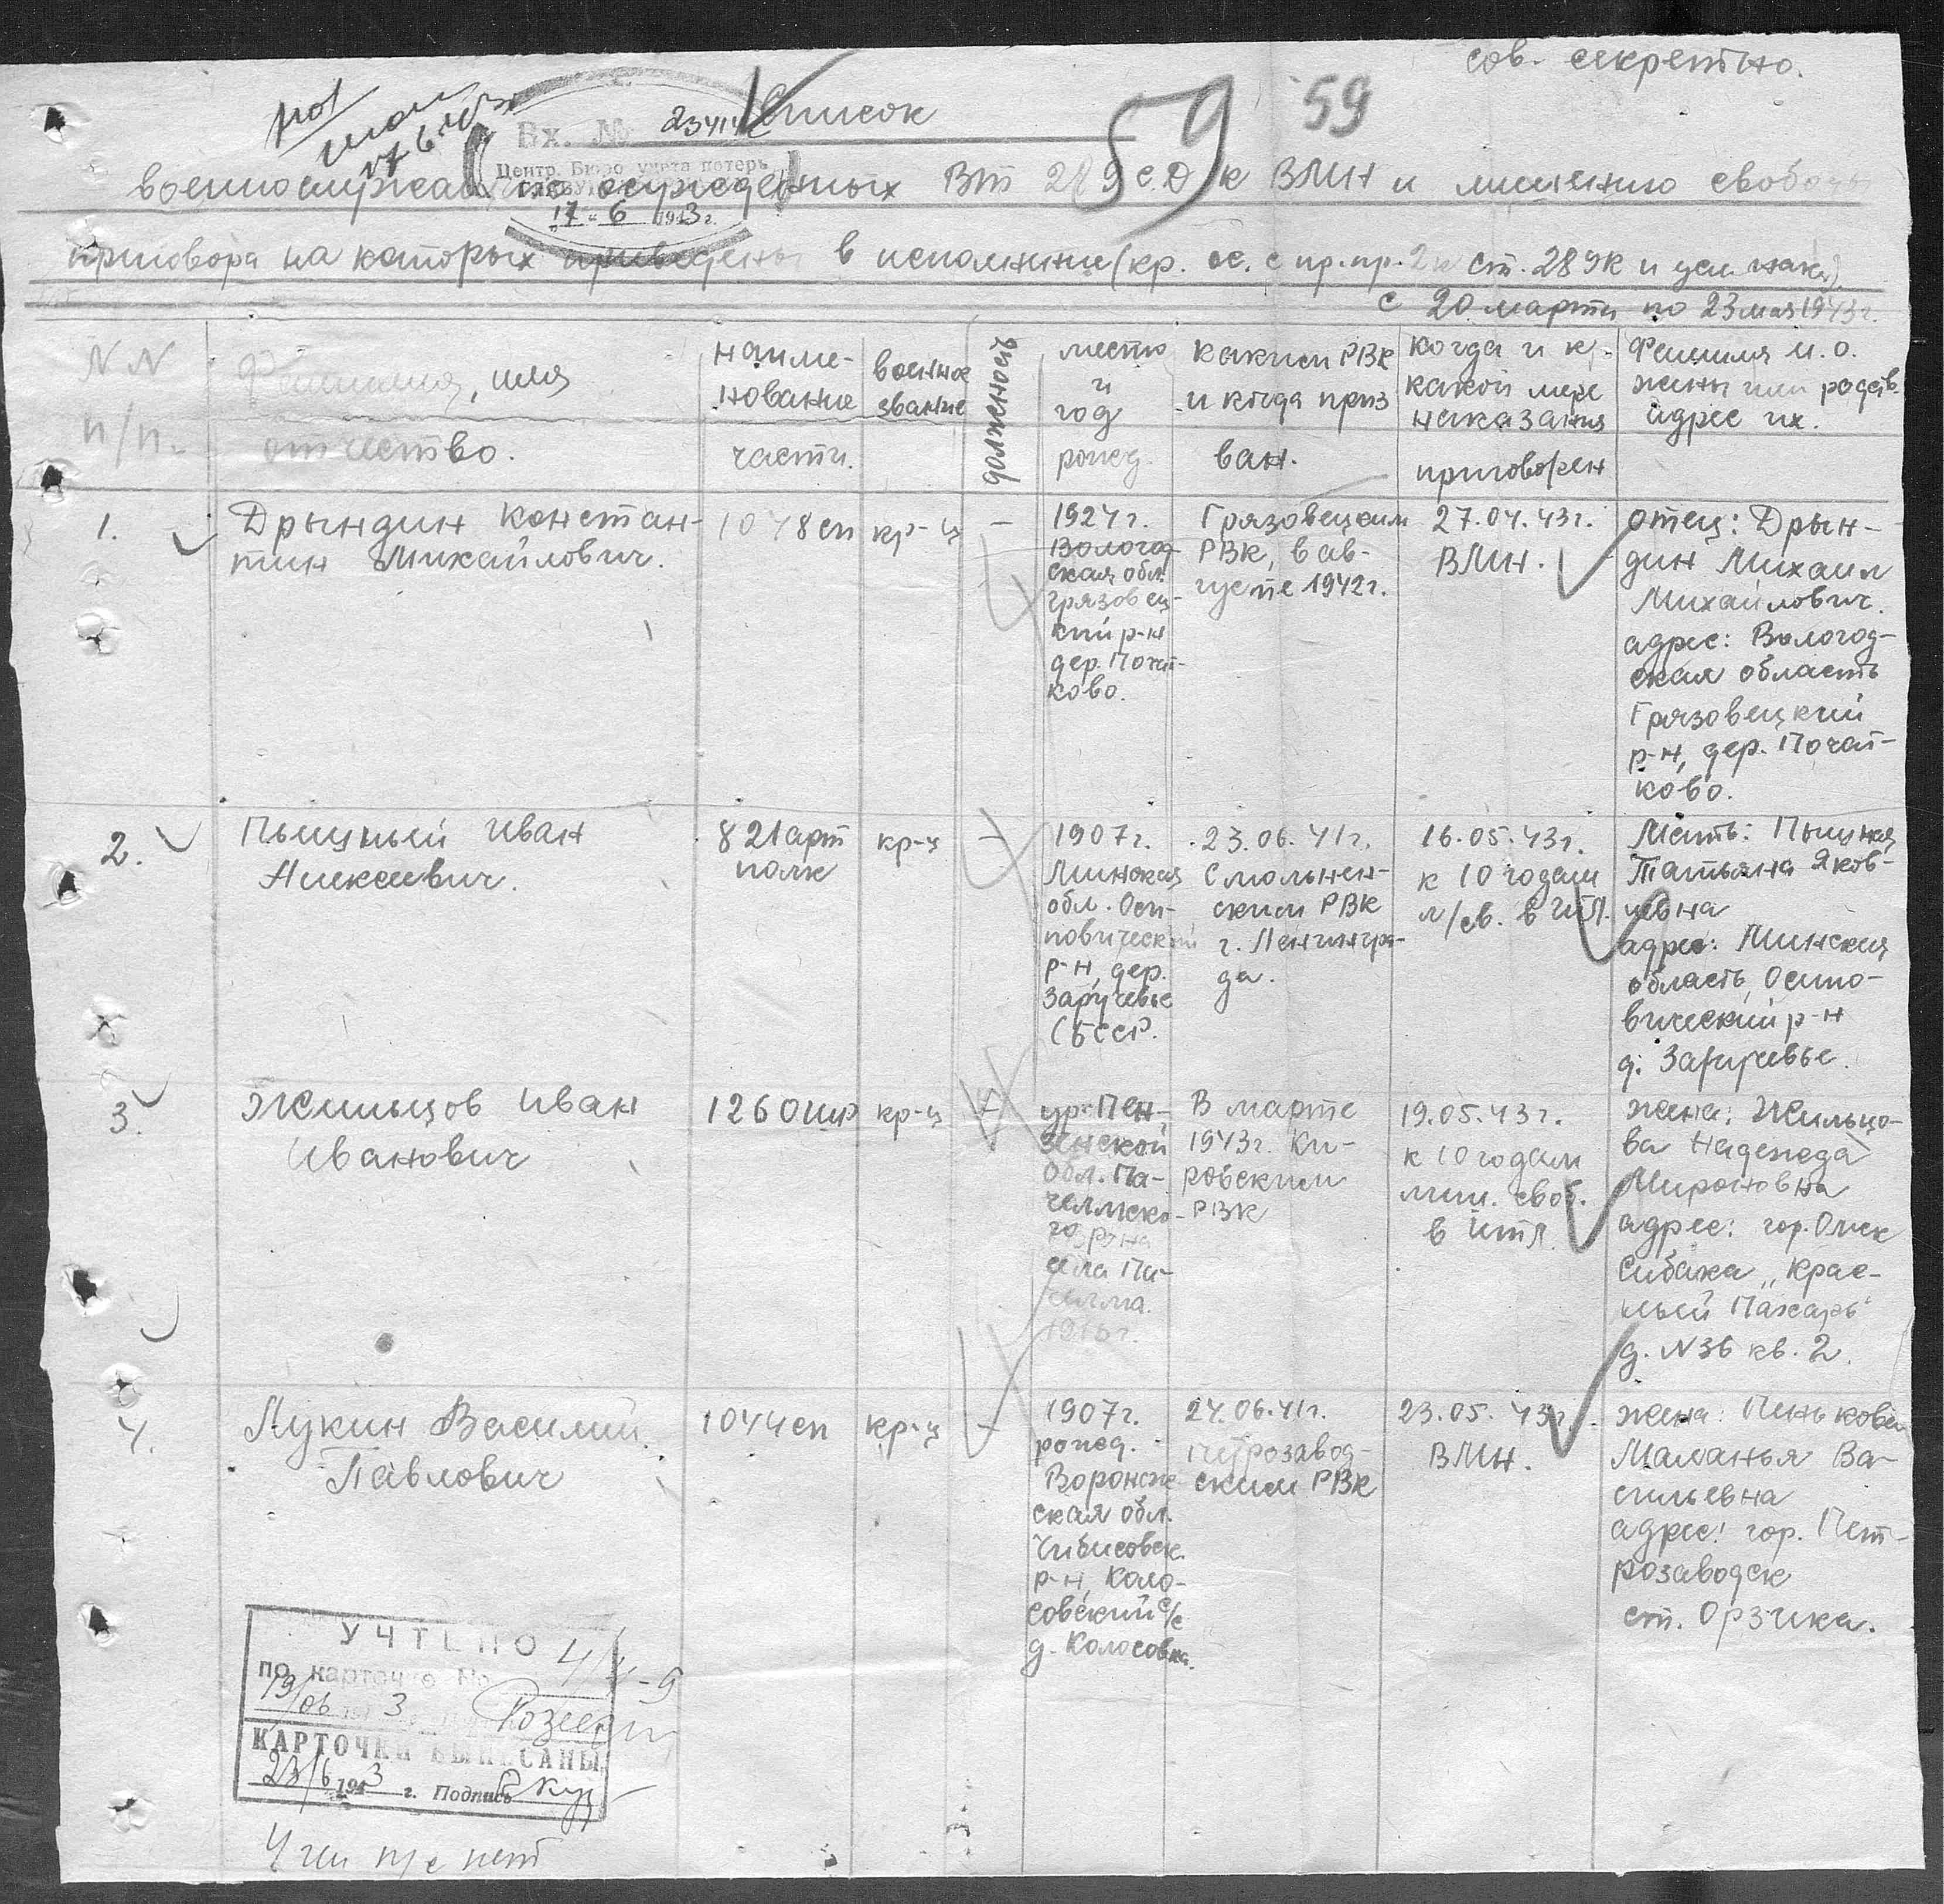 сов. секретно.
59 59
Список
Вх. №
Центр. Бюро учета потерь
17 " 6 1943 г.
военнослужащих осужденных ВТ 289 с.д к ВМН и лишению свободы
приговора на которых приведены в исполнение (кр. ос. с пр. пр. 2 к ст. 28 УК и
с 20 марта по 23 мая 1943 г.
N N п/п.
Фамилия, имя отчество.
наиме-
нование
части.
военное
звание
должность
место
и
год
рожд.
каким РВК
и когда приз
ван.
когда и к
какой мере
наказания
приговорен
Фамилия И. О.
жены или родств.
адрес их.
1.
Дрындин Констан-
тин Михайлович.
1048 сп
кр-ц
–
1924 г.
Волого-
ская обл.
Грязовец-
кий р-н
дер. Почин-
ково.
Грязовецким
РВК, в ав-
густе 1942 г.
27.04.43 г.
ВМН.
отец: Дрын-
дин Михаил
Михайлович.
адрес: Вологод-
ская область
Грязовецкий
р-н, дер. Почин-
ково.
2.
Пышный Иван
Алексеевич.
821 арт
полк
кр-ц
–
1907 г.
Минская
обл. Оси-
повический
р-н, дер.
Заручевье
(БССР.
23.06.41 г.
Смольнен-
ским РВК
г. Ленингра-
да.
16.05.43 г.
к 10 годам
л/св. в ИТЛ.
Мать: Пышная
Татьяна Яков-
левна
адрес: Минская
область, Осипо-
вический р-н
д. Заручевье.
3.
Жильцов Иван
Иванович
1260
кр-ц
–
ур. Пен-
зенской
обл. Па-
челмско-
го р-на
села Па-
челма.
191 г.
В марте
1943 г. Ки-
ровским
РВК
19.05.43 г.
к 10 годам
лиш. своб.
в ИТЛ.
жена: Жильцо-
ва Надежда
Мироновна
адрес: гор. Омск
"Крас-
ный Пахарь"
д. N 36 кв. 2.
4.
Лукин Василий
Павлович
1044 сп
кр-ц
–
1907 г.
рожд.
Воронеж-
ская обл.
Чибисовск.
р-н, Коло-
совский с/с
д. Колосовка.
24.06.41 г.
Петрозавод-
ским РВК
23.05.43 г.
ВМН.
жена: Пенькова
Маланья Ва-
сильевна
адрес: гор. Пет-
розаводск
ст.
УЧТЕНО
по карточке No
19/06 1943
КАРТОЧКИ ВЫПИСАНЫ
23/6 1943 г. Подпись